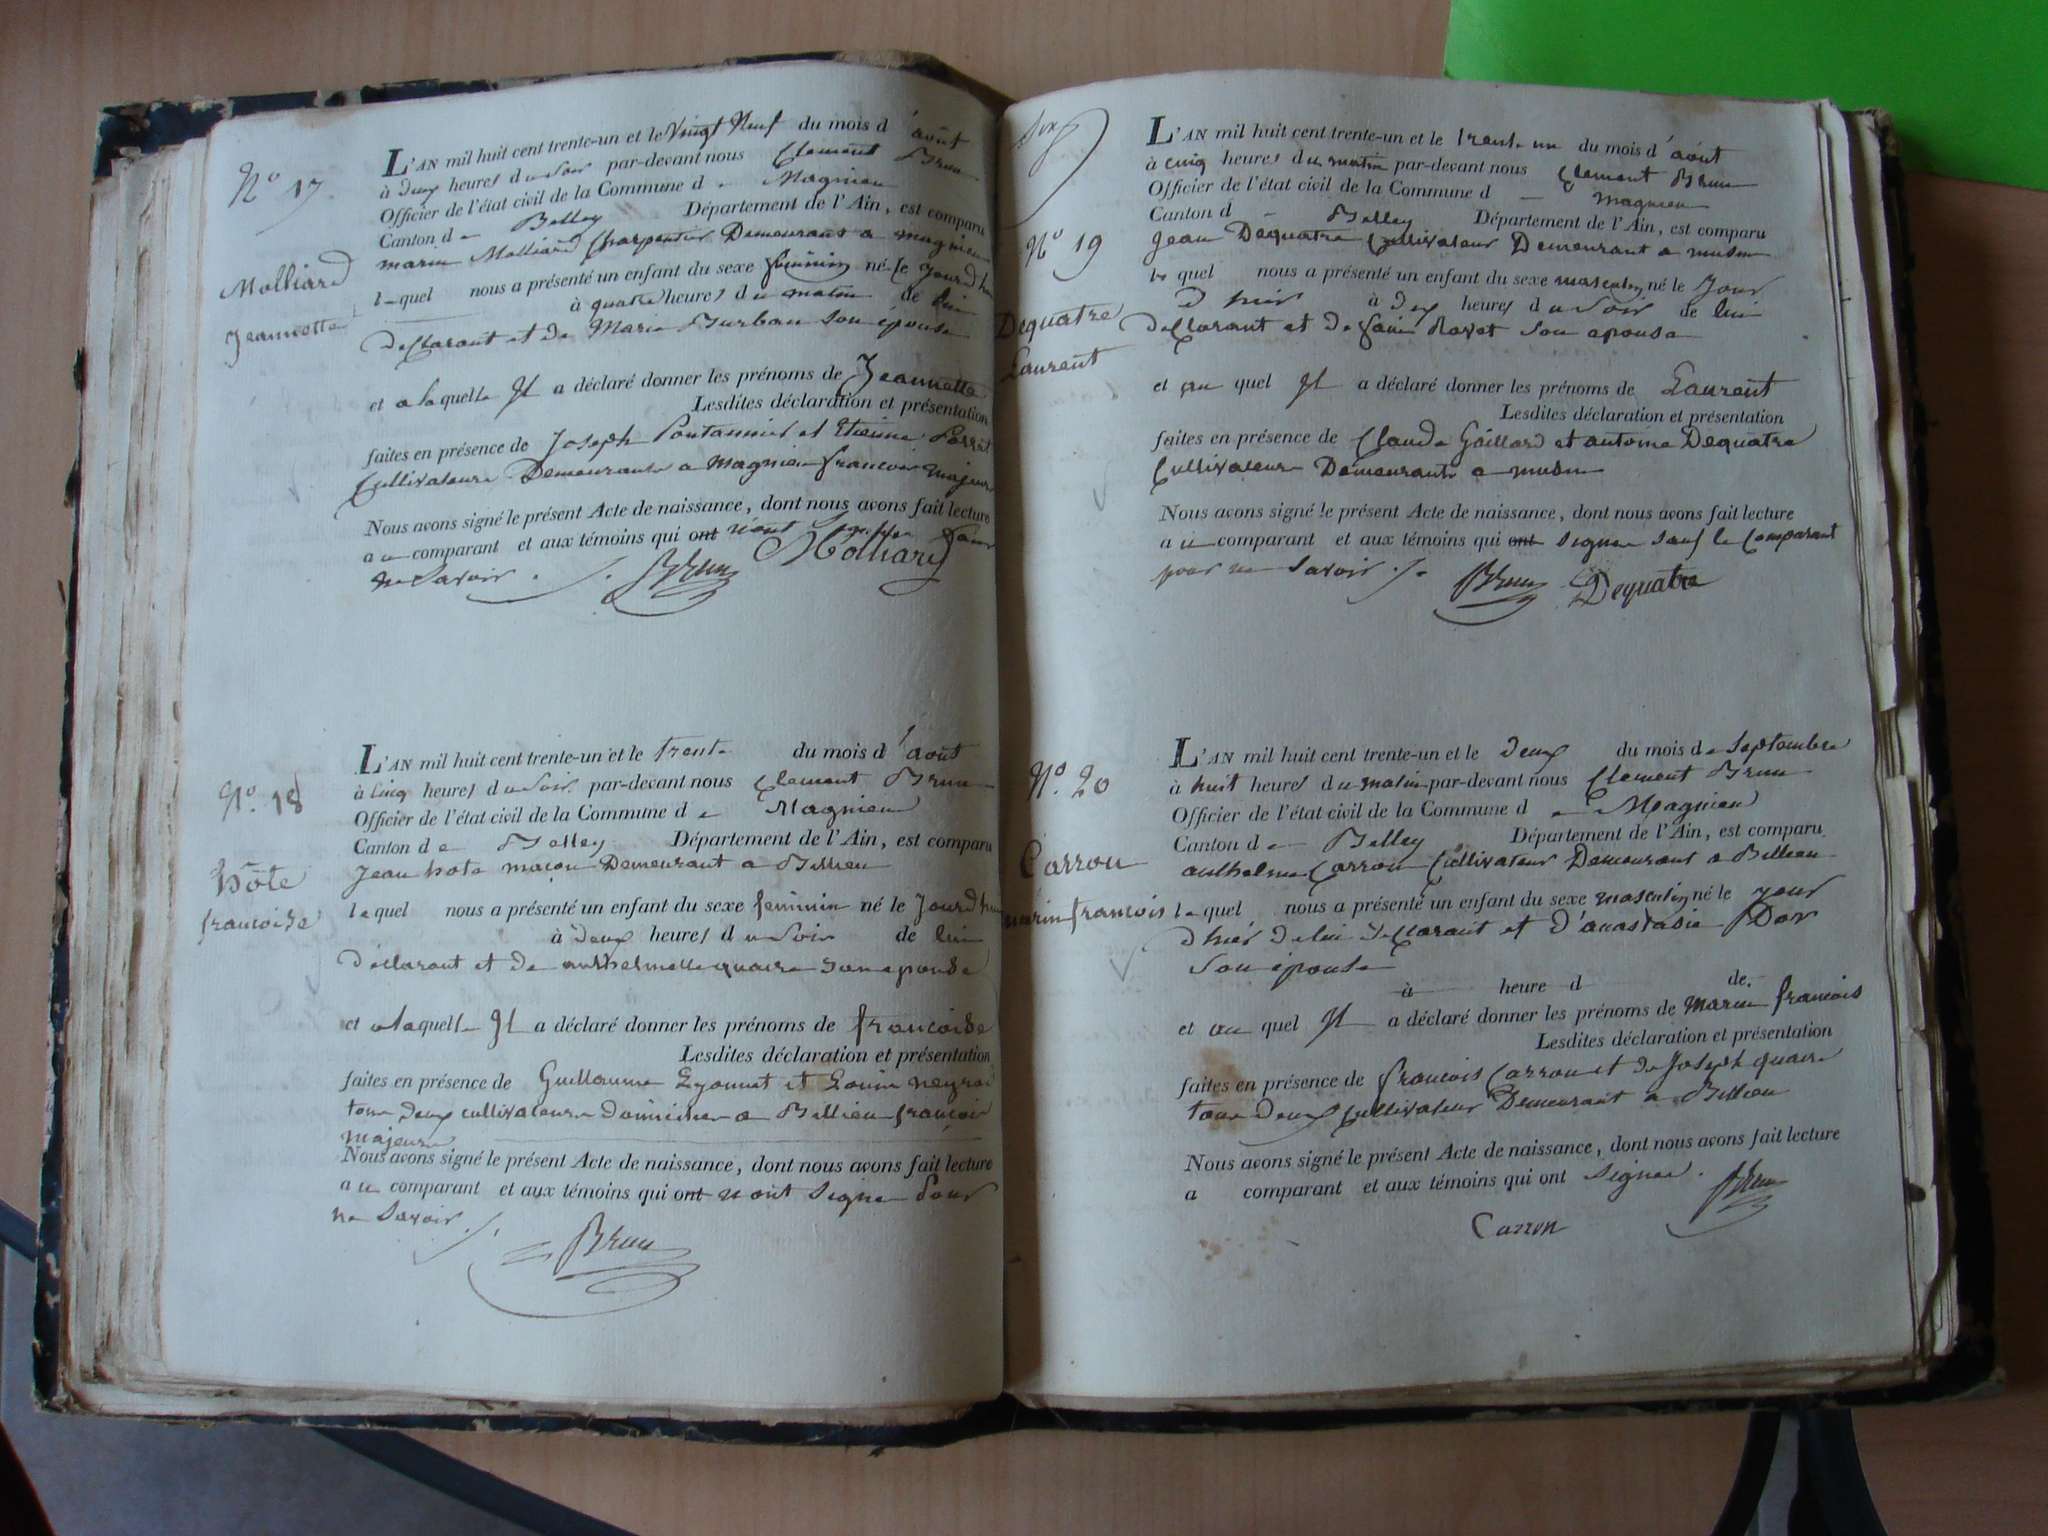 N° 17
Molliard
Jeannette
L'AN mil huit cent trente-un et le Vingt Neuf du mois d'août
à deux heures du soir par-devant nous Clement Brun
Officier de l'état civil de la Commune de Magnieu
Canton de Belley Département de l'Ain, est comparu
marin Molliard Charpentier Demeurant a magnieu
lequel nous a présenté un enfant du sexe féminin né le Jourd'hui
à quatre heures du matin de lui
declarant et de Marie Burban son épouse
et a laquelle Il a déclaré donner les prénoms de Jeannette
Lesdites déclaration et présentation
faites en présence de Joseph Pontannier et Etienne
Cultivateurs Demeurants a Magnieu francois majeurs
Nous avons signé le présent Acte de naissance, dont nous avons fait lecture
au comparant et aux témoins qui ont n'ont signe pour
ne Savoir ./. Brun Molliard
N° 18
hôte
francoise
L'AN mil huit cent trente-un et le trente du mois d'août
à cinq heures du soir par-devant nous Clement Brun
Officier de l'état civil de la Commune de Magnieu
Canton de Belley Département de l'Ain, est comparu
Jean hote maçon Demeurant a Billieu
lequel nous a présenté un enfant du sexe feminin né le Jourd'hui
à deux heures du soir de lui
déclarant et de anthelmette quaire son epouse
et a laquelle Il a déclaré donner les prénoms de francoise
Lesdites déclaration et présentation
faites en présence de Guillaume Lyonnet et Louis neyrod
tous deux cultivateurs domicilies a Billieu françois
majeurs
Nous avons signé le présent Acte de naissance, dont nous avons fait lecture
au comparant et aux témoins qui ont n'ont signe pour
ne Savoir ./.
Brun
N° 19
Dequatre
Laurent
L'AN mil huit cent trente-un et le trente un du mois d'août
à cinq heures du matin par-devant nous Clement Brun
Officier de l'état civil de la Commune d magnieu
Canton d Belley Département de l'Ain, est comparu
Jean Dequatre Cultivateur Demeurant a musin
lequel nous a présenté un enfant du sexe masculin né le Jour
d'hier à deux heures du soir de lui
declarant et de Rovet son epouse
et au quel Il a déclaré donner les prénoms de Laurent
Lesdites déclaration et présentation
faites en présence de Claude Gaillard et antoine Dequatre
Cultivateurs Demeurants a musin
Nous avons signé le présent Acte de naissance, dont nous avons fait lecture
au comparant et aux témoins qui ont signe sauf le Comparant
pour ne Savoir ./. Brun Dequatre
N° 20
Carron
marin francois
L'AN mil huit cent trente-un et le deux du mois de Septembre
à huit heures du matin par-devant nous Clement Brun
Officier de l'état civil de la Commune de Magnieu
Canton de Belley Département de l'Ain, est comparu
anthelme Carron Cultivateur Demeurant a Billieu
lequel nous a présenté un enfant du sexe masculin né le jour
d'hier de lui declarant et d'anastasie Dor
Son épouse
à heure d de
et au quel Il a déclaré donner les prénoms de marin francois
Lesdites déclaration et présentation
faites en présence de francois Carron et de Joseph quaire
tous deux Cultivateur Demeurant a Billieu
Nous avons signé le présent Acte de naissance, dont nous avons fait lecture
a comparant et aux témoins qui ont signe. Brun
Carron